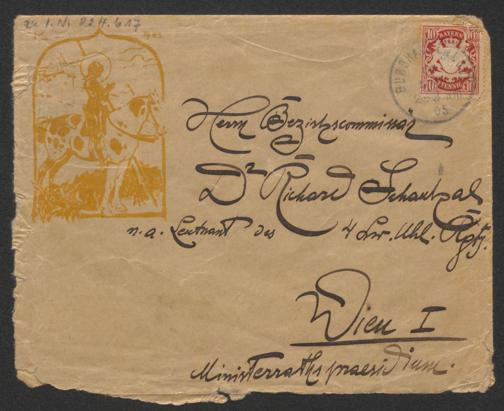 zu I.N. 824.617
1903
BAYERN
10 10
PFENNIG
BURGHA
05
Herrn Bezirkscommissar
Dr Richard Schaukal
n. a. Leutnant des 4 Ldw. Uhl. Rgts.
Wien I
Ministerrathspraesidium.